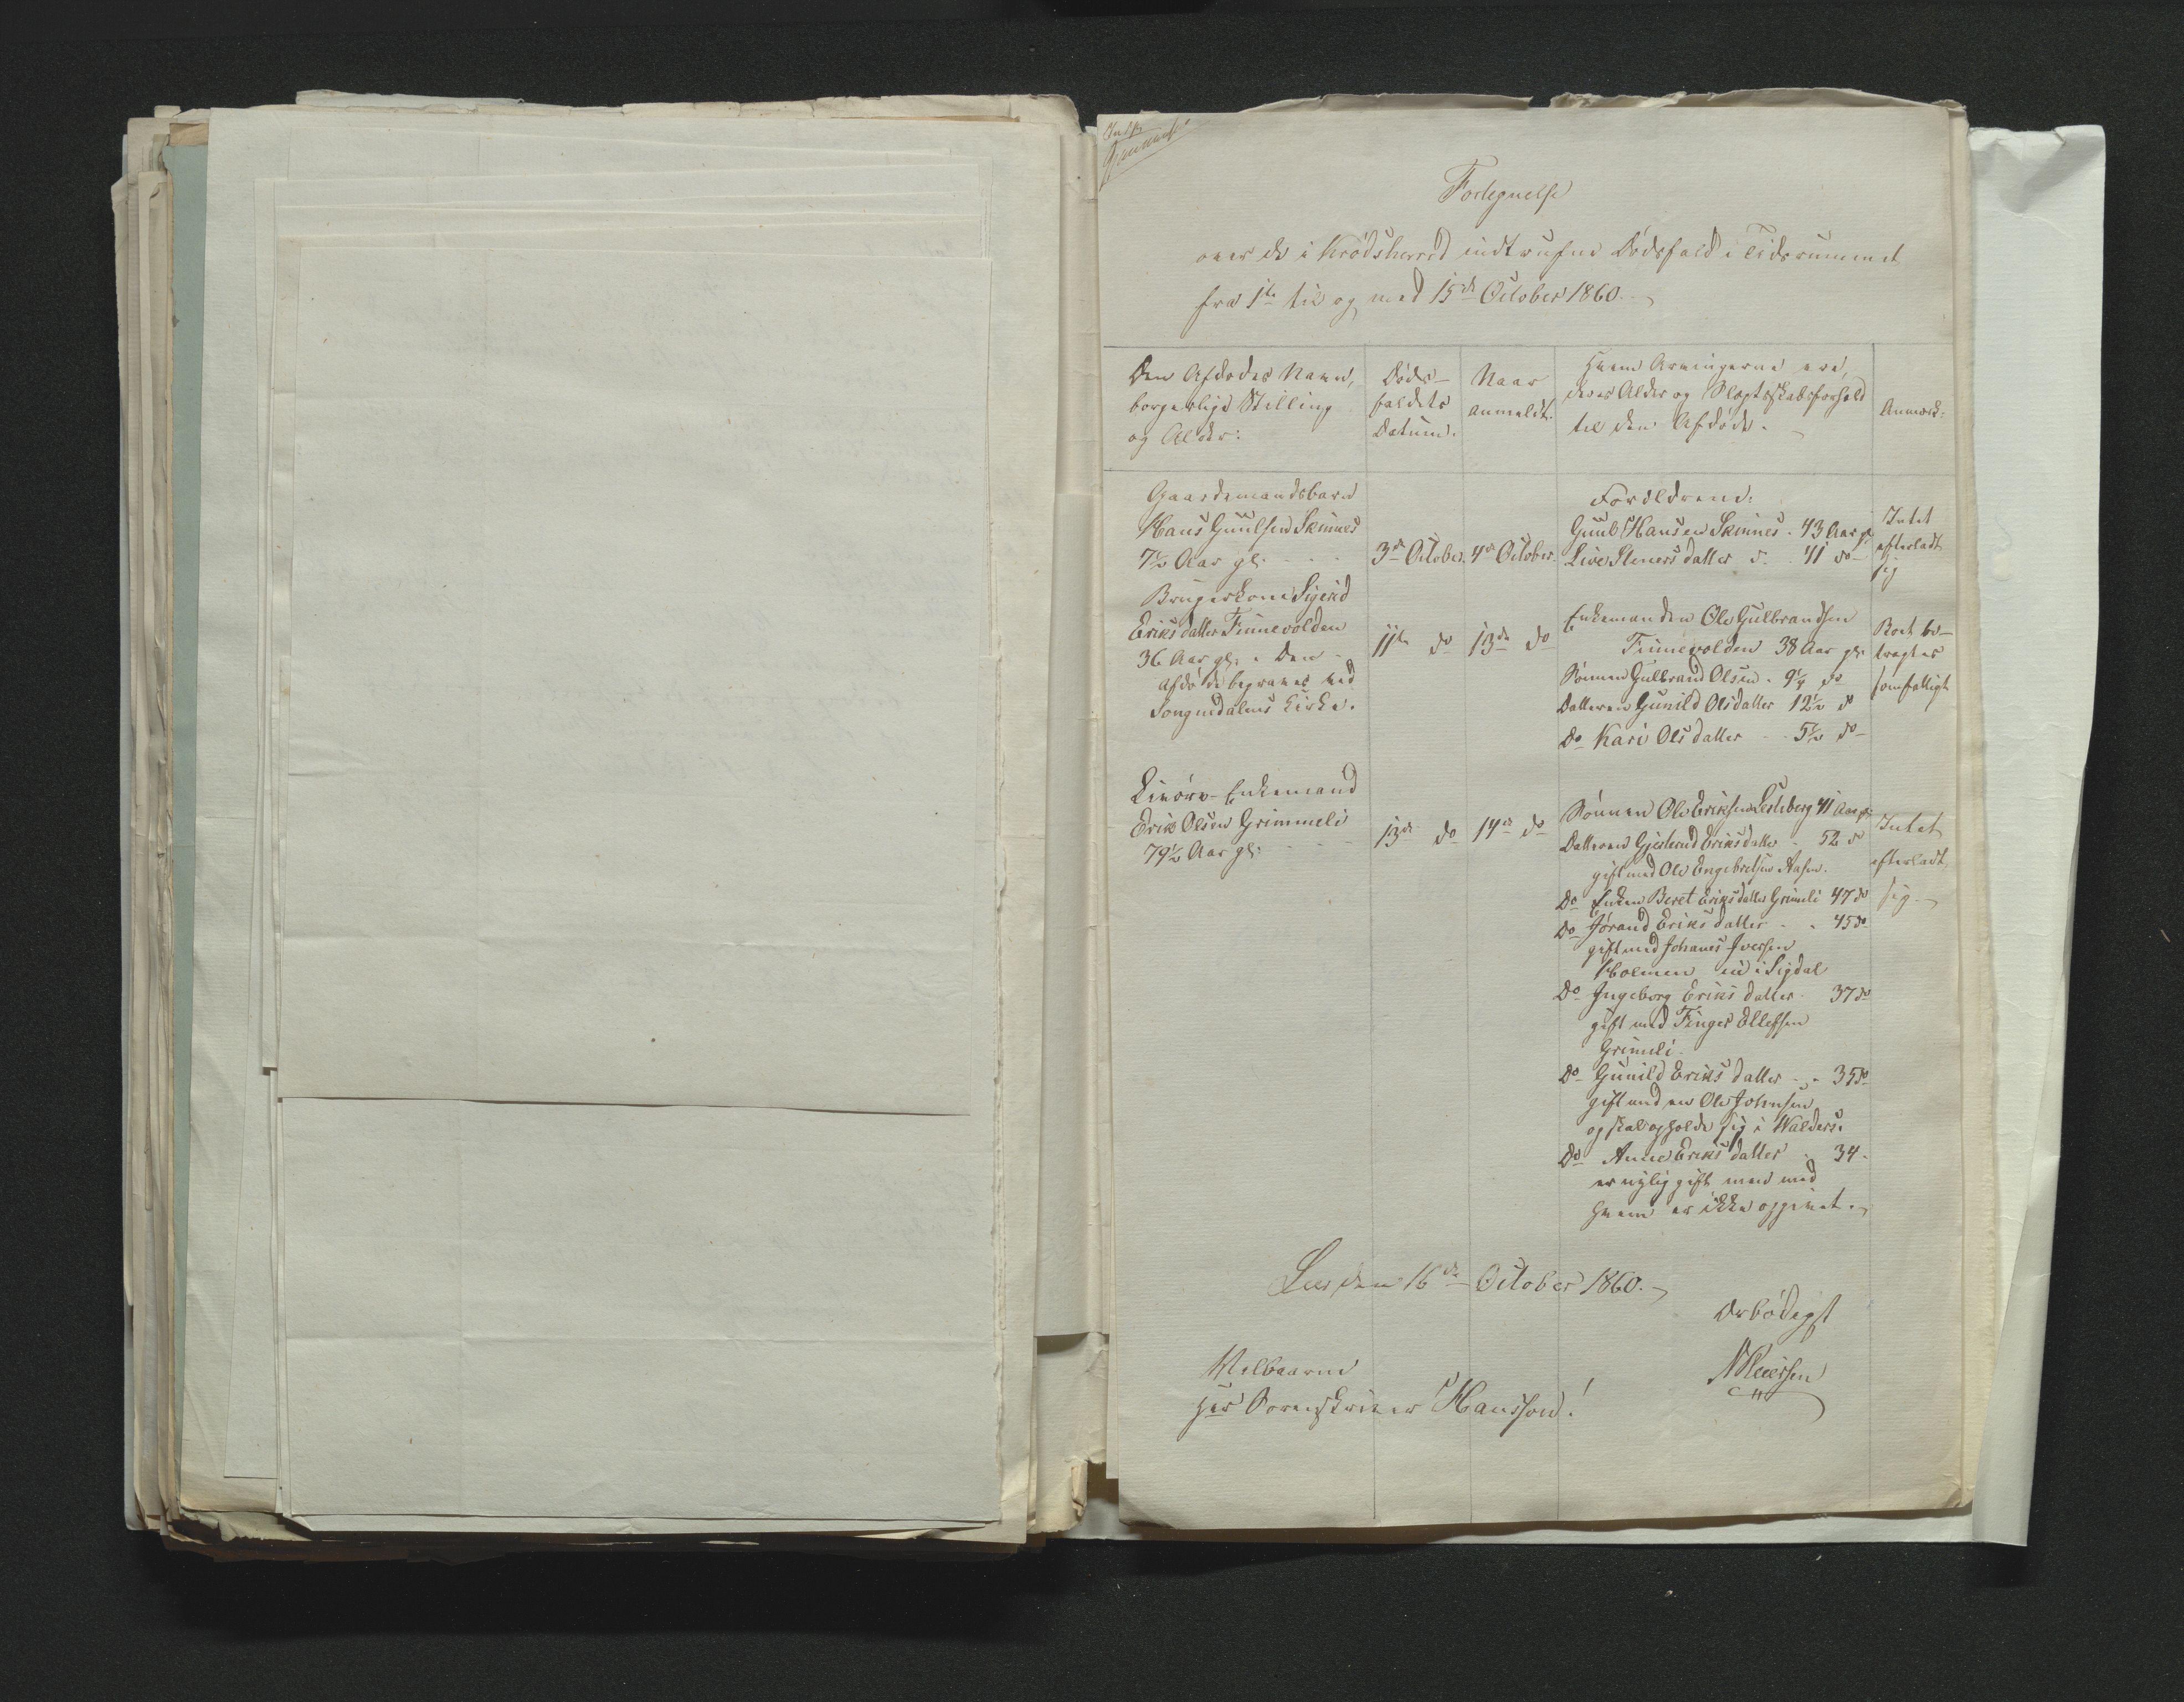 Fortegnelse
over de i Krødsherred indtrufne Dødsfald i Tidsrummet
fra 1te til og med 15de October 1860.
Den Afdødes Navn,
borgerlige Stilling
og Alder:
Døds-
faldets
Datum.
Naar
anmeldt.
Hvem Arvingerne ere,
deres Alder og Slægtskabsforhold
til den Afdøde.
Anmærk:
Gaardemandsbarn
Hans Guulsen Skinnes
7½ Aar gl.
3de October.
4de October.
Forældrene:
Guul Hansen Skinnes. 43 Aar gl
Live Stenersdatter 41 do
Intet
efterladt
sig
Brugerkone Sigrid
Eriksdatter Finnevolden
36 Aar gl. Den
afdøde begravet ved
Songnedalens Kirke.
11te do
13de do
Enkemanden Ole Gulbrandsen
Finnevolden 38 Aar gl.
Sønnen Gulbrand Olsen. 9¼ do
Datteren Gunild Olsdatter 12½ do
Do Kari Olsdatter 5½ do
Boet be-
tragtes
somfattigt
Livøre-Enkemand
Erik Olsen Grimmeli
79½ Aar gl:
13de do
14de do
Sønnen Ole Eriksen Lesteberg 41 Aar gl.
Datteren Gjertrud Eriksdatter 52 do
gift med Ole Engebretsen Aasen.
Do Enken Beret Eriksdatter Grimeli 47 do
Do Jørand Eriksdatter 45 do
gift med Johanes Iversen
Holmen i Sigdal
Do Ingeborg Eriksdatter 37 do
gift med Finger Ellefsen
Grimeli.
Do Gunild Eriksdatter 35 do
gift med en Ole Johnsen
og skal opholde sig i Walders.
Do Anne Eriksdatter 34.
er nylig gift men med
hvem er ikke opgivet.
Intet
efterladt
sig.
Lee den 16de October 1860.
Ærbødigst
Velbaarne
Her Sorenskriver Hansson!